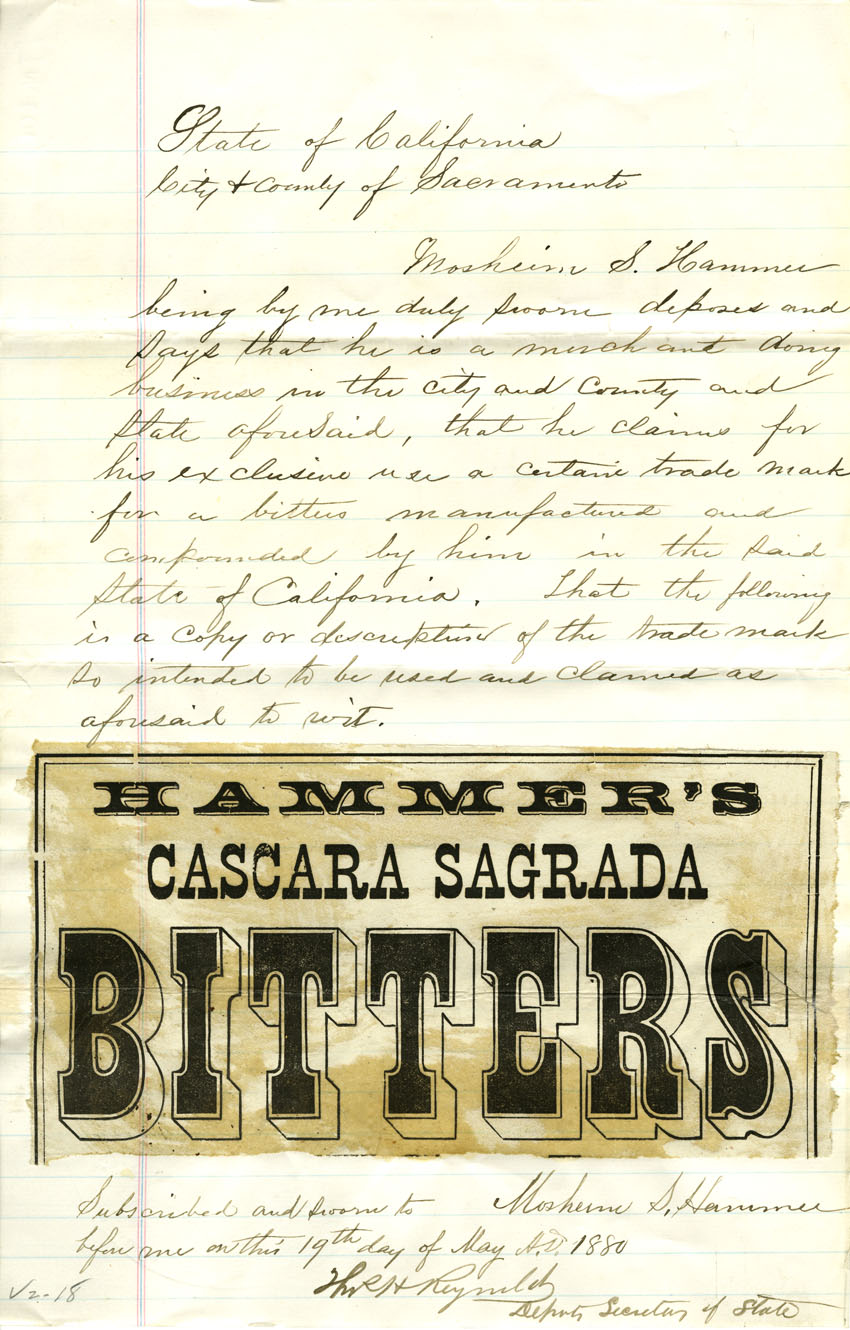 State of California
City & County of Sacramento
Mosheim S. Hammer
being by me duly sworn deposes and
says that he is a merchant doing
business in the city and County and
State aforesaid, that he claims for
his exclusive use a certain trade mark
for a bitters manufactured and
compounded by him in the said
State of California. That the following
is a copy or description of the trade mark
so intended to be used and claimed as
aforesaid to wit.
HAMMER'S
CASCARA SAGRADA
BITTERS
Subscribed and sworn to Mosheim S. Hammer
before me on this 19th day of May A.D. 1880
Thos H Reynolds
Deputy Secretary of State
V2-18